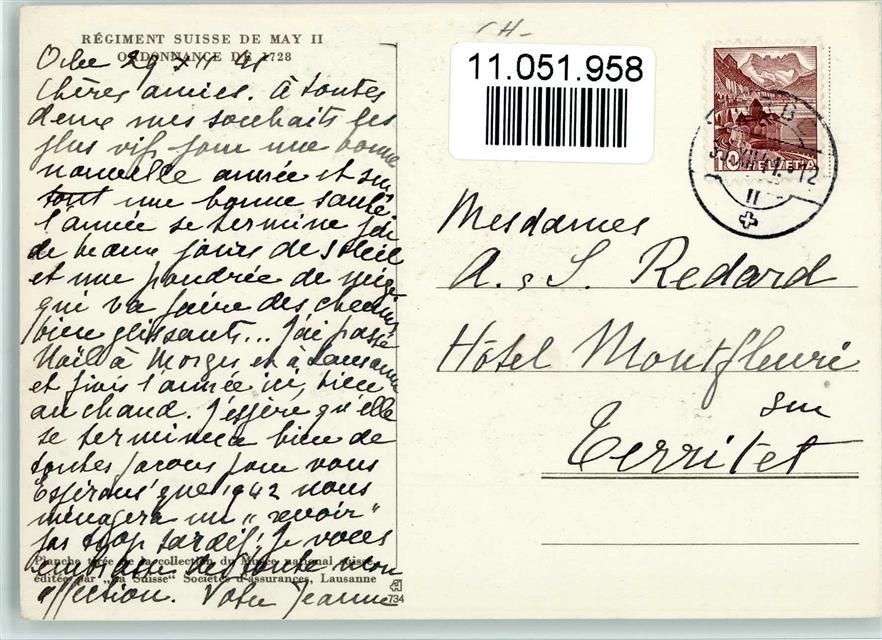 RÉGIMENT SUISSE DE MAY II
ORDONNANCE DE 1728
Orbe 29 XII 41
Chères amies. à toutes
deux mes souhaits les
plus vifs pour une bonne
nouvelle année et surtout
une bonne santé.
l'année se termine par
de beaux jours de soleil
et une poudrée de neige
qui va faire des chemins
bien glissants... J'ai passé
Noël à Morges et à Lausanne
et finis l'année ici, bien
au chaud. J'espère qu'elle
se terminera bien de
toutes façons pour vous
Espérons que 1942 nous
ménagera un "revoir"
pas trop tardif! Je vous
embrasse de toute mon
affection. Votre Jeanne
Planche tirée de la collection du Musée national suisse,
éditée par „La Suisse“ Sociétés d'assurances, Lausanne
734
CH-
11.051.958
HELVETIA
10
XII 41. 12
II
Mesdames
A. & S. Redard
Hôtel Montfleuri
sur
Territet